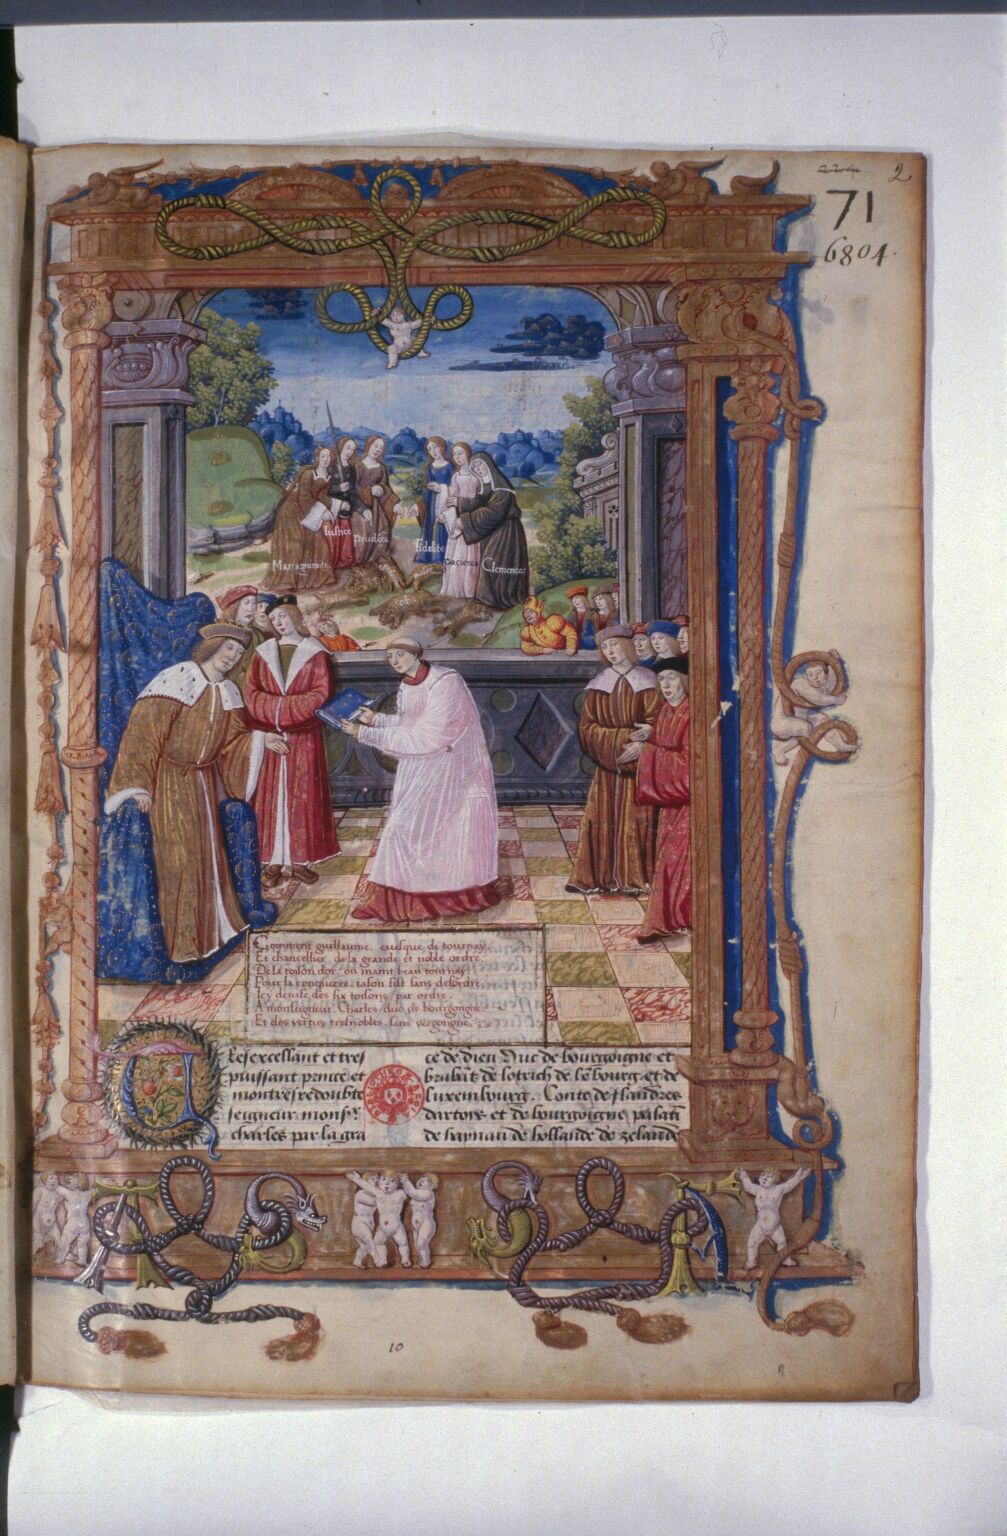 224 2
71
6804.
Justice
Prudēce
Fidelite
Magnanimite
Pacience
Clemence
Comment guillaume, euesque de tournay
Et chancellier de la grande et noble ordre
De la toison dor, ou maint beau tournay
Pour la conquerre, iason fist sans desordre
Icy deuise des six toisons par ordre
A monseigneur Charles duc de bourgongne
Et des vertus tresnobles sans vergongne
Tresexcellant et tres
puissant prince et
mon tresredoubte
seigneur monsr
charles par la gra
ce de dieu Duc de bourgoigne et
brabāt de lotrich de lēbourg et de
luxembourg. Conte de flandres
dartois et de bourgoigne palatī
de haynau de hollande de zelande
10